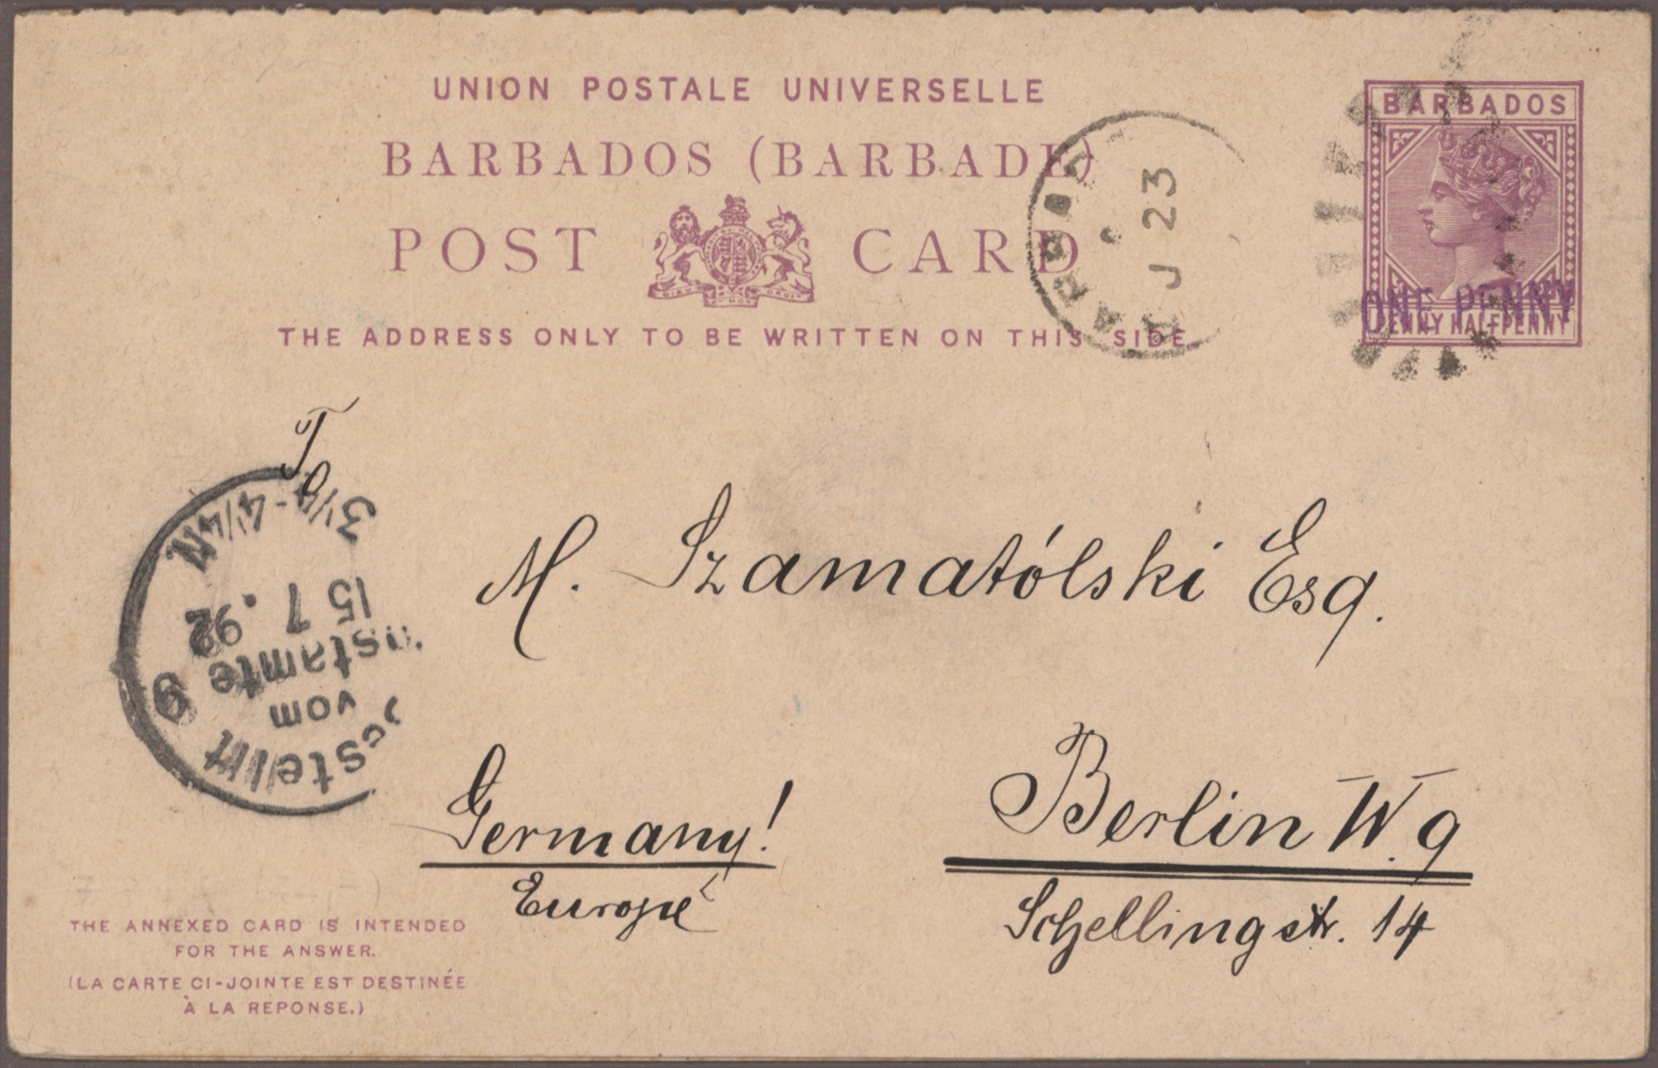 UNION POSTALE UNIVERSELLE
BARBADOS (BARBADE)
POST CARD
THE ADDRESS ONLY TO BE WRITTEN ON THIS SIDE.
BARBADOS
ONE PENNY
PENNY HALFPENNY
J 23
To
3¼-4¼N
15 7. 92
vom
9
M. Szamatólski Esq.
Germany!
Europe
Berlin W. 9
Schellingstr. 14
THE ANNEXED CARD IS INTENDED
FOR THE ANSWER.
(LA CARTE CI-JOINTE EST DESTINÉE
À LA REPONSE.)